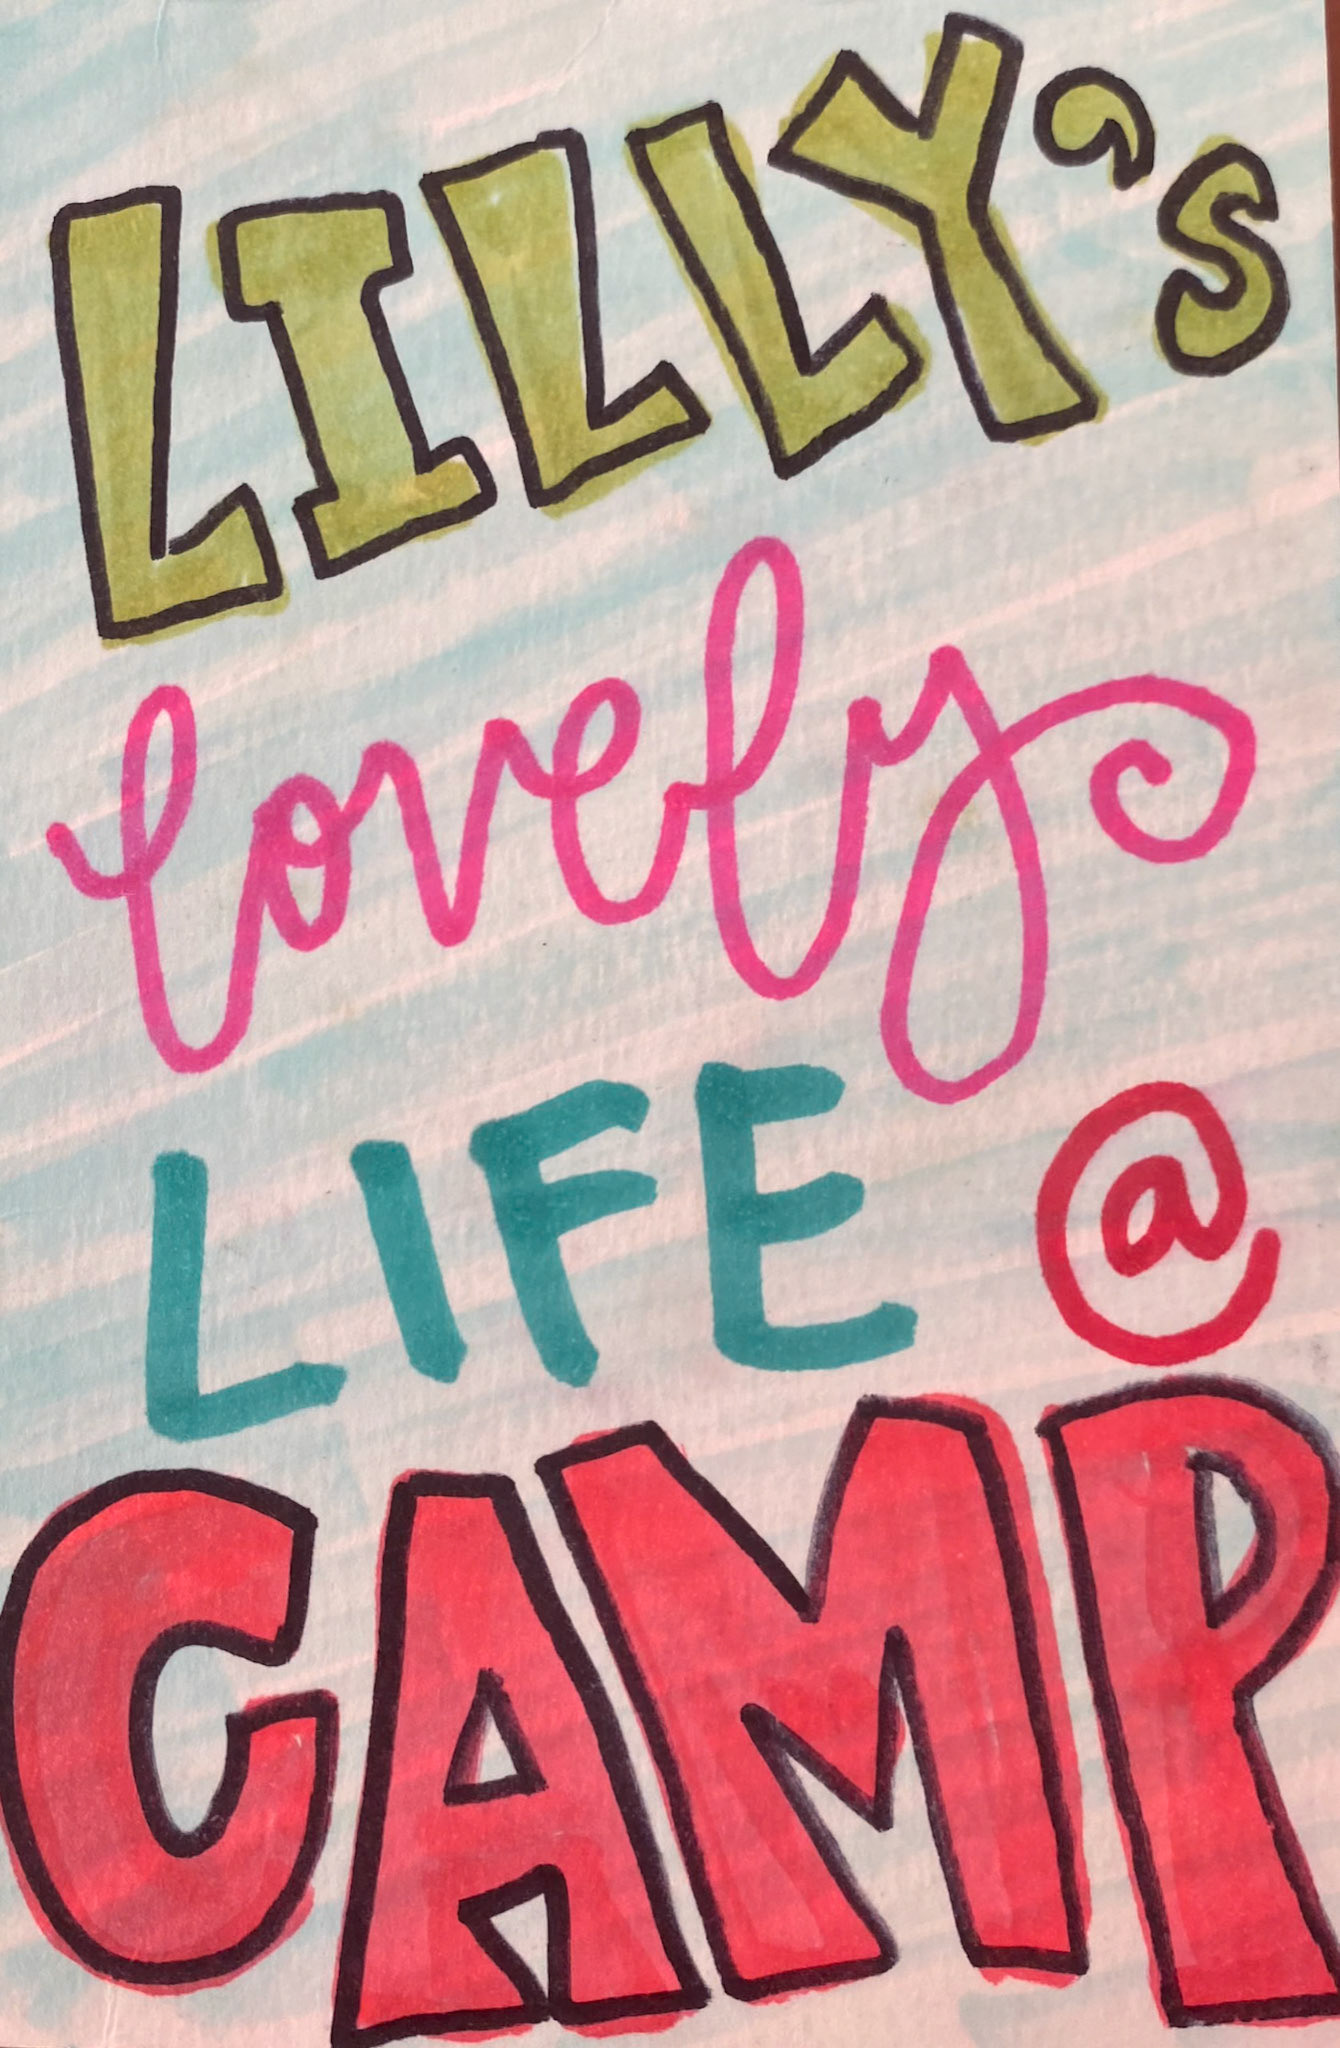 LILLY's
lovely
LIFE @
CAMP